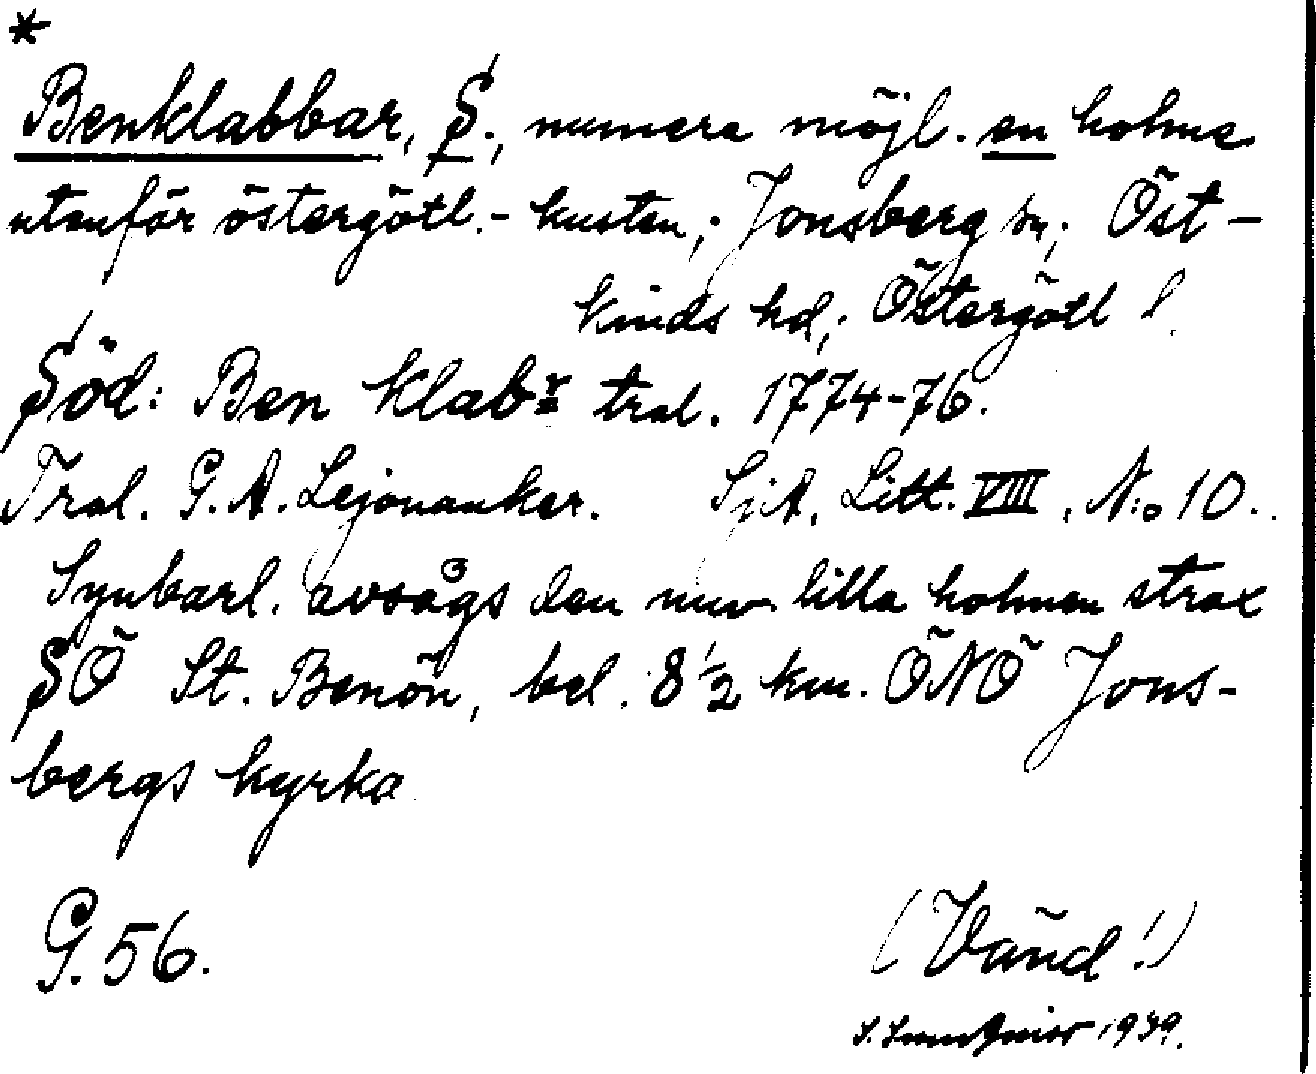 *
Benklabbar, S., numera möjl. en holme
utenför östergötl.- kusten; Jonsberg sn; Öst-
kinds hd; Östergötl l.
Söd: Ben klabr tral. 1774-76.
Tral. G. A. Lejonanker. SjA, Litt. VIII, N:o 10.
Synbarl. avsågs den nuv. lilla holmen strax
SÖ St. Benön, bel. 8 1/2 km. ÖNÖ Jons-
bergs kyrka
G. 56.
(Vänd!)
1939.